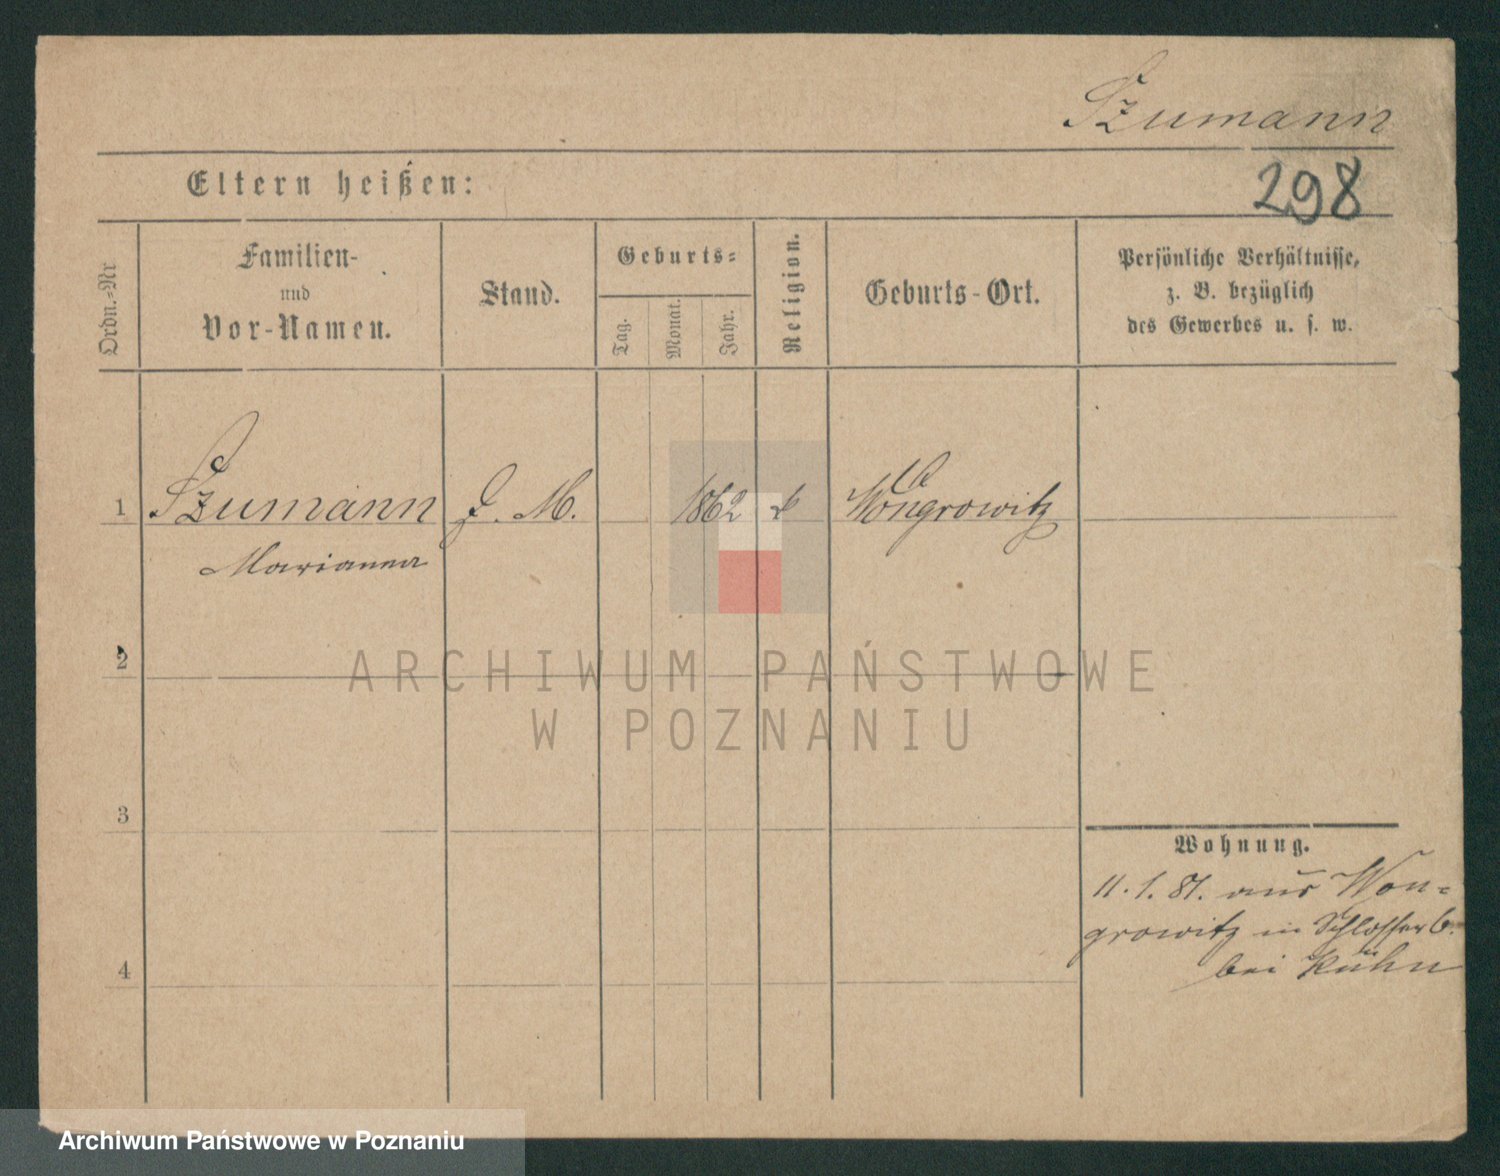 Szumann
298
Eltern heißen:
Ordn.-Nr
Familien-
und
Vor-Namen.
Stand.
Geburts-
Tag.
Monat.
Jahr.
Religion.
Geburts-Ort.
Persönliche Verhältnisse,
z. B. bezüglich
des Gewerbes u. s. w.
1 Szumann D. M. 1862 k Wongrowitz
Marianna
2
3
4
Wohnung.
11.1.81. aus Won-
growitz in Schlosser 6.
bei Kühn
ARCHIWUM PAŃSTWOWE
W POZNANIU
Archiwum Państwowe w Poznaniu